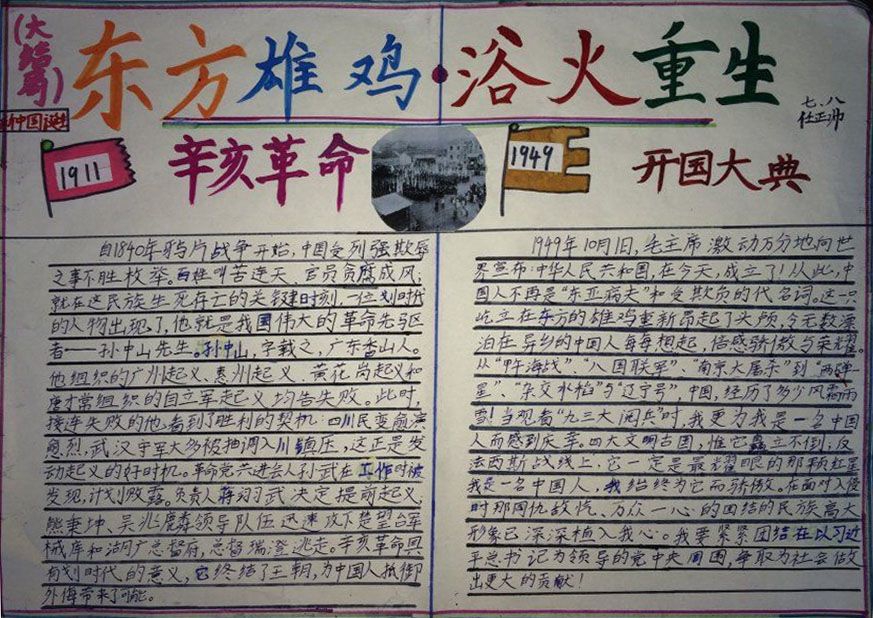 (大结局)
东方雄鸡·浴火重生
新中国诞生
七、八
任正沛
1911
辛亥革命
1949
开国大典
自1840年鸦片战争开始,中国受列强欺辱
之事不胜枚举。百姓叫苦连天,官员贪腐成风;
就在这民族生死存亡的关键时刻,一位划时代
的人物出现了,他就是我国伟大的革命先驱
者——孙中山先生。孙中山,字载之,广东香山人。
他组织的广州起义、惠州起义、黄花岗起义和
唐才常组织的自立军起义均告失败。此时,
接连失败的他,看到了胜利的契机:四川民变愈演
愈烈,武汉守军大多被抽调入川镇压,这正是发
动起义的好时机。革命党共进会人孙武在工作时被
发现,计划败露。负责人蒋翊武决定提前起义;
熊秉坤、吴兆麟领导队伍迅速攻下楚望台军
械库和湖广总督府,总督瑞澄逃走。辛亥革命具
有划时代的意义,它终结了王朝,为中国人抵御
外侮带来了可能。
1949年10月1日,毛主席激动万分地向世
界宣布:中华人民共和国,在今天,成立了!从此,中
国人不再是“东亚病夫”和受欺负的代名词。这一只
屹立在东方的雄鸡重新昂起了头颅,令无数漂
泊在异乡的中国人每每想起,倍感骄傲与荣耀。
从“甲午海战”、“八国联军”、“南京大屠杀”到“两弹一
星”、“杂交水稻”与“辽宁号”,中国,经历了多少风霜雨
雪!当观看“九三大阅兵”时,我更为我是一名中国
人而感到庆幸。四大文明古国,惟它矗立不倒;反
法西斯战线上,它一定是最耀眼的那颗红星
我是一名中国人,我始终为它而骄傲。在面对入侵
时那同仇敌忾、万众一心的团结的民族高大
形象已深深植入我心。我要紧紧团结在以习近
平总书记为领导的党中央周围,争取为社会做
出更大的贡献!